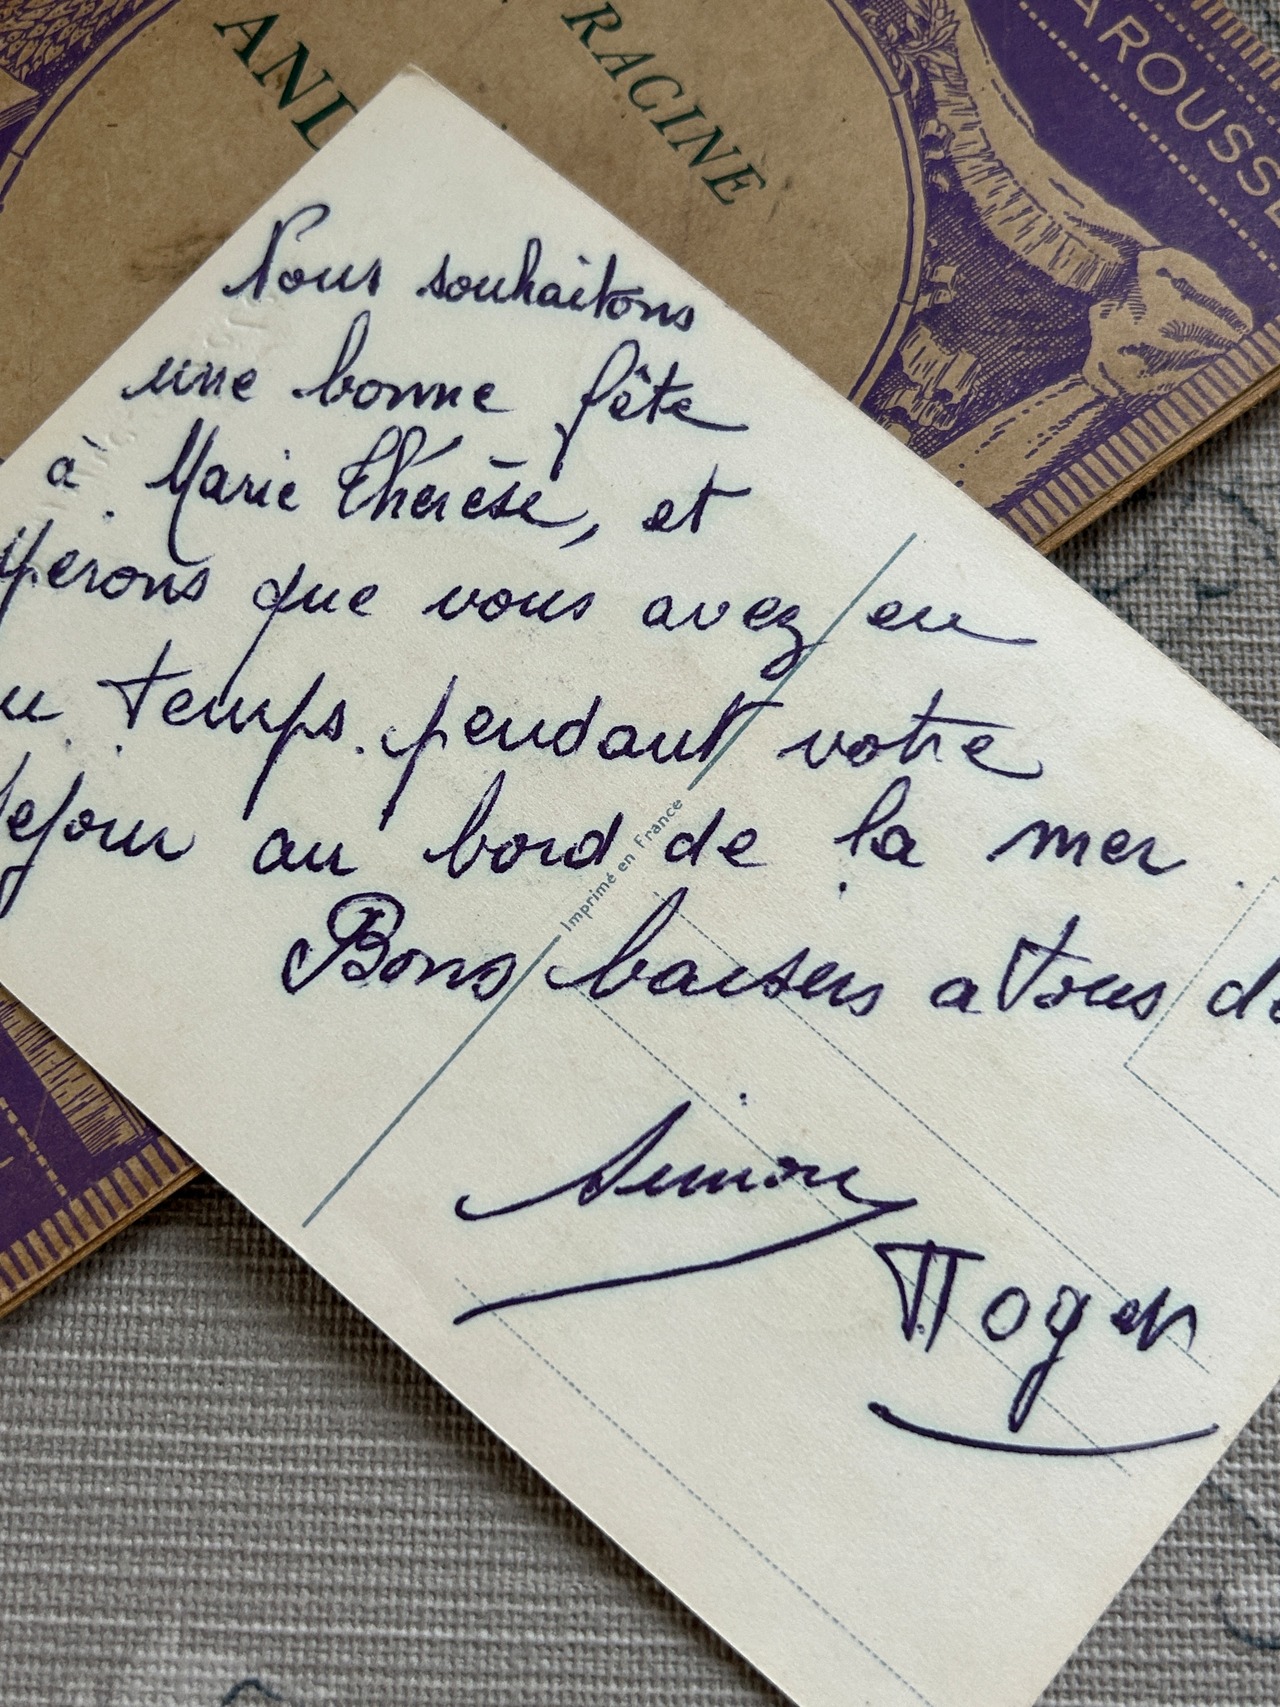 RACINE
AND
LAROUSSE
Nous souhaitons
une bonne fête
à Marie Thérèse, et
perons que vous avez eu
u temps pendant votre
séjour au bord de la mer.
Bons baisers a tous de
Simon
Roger
Imprimé en France